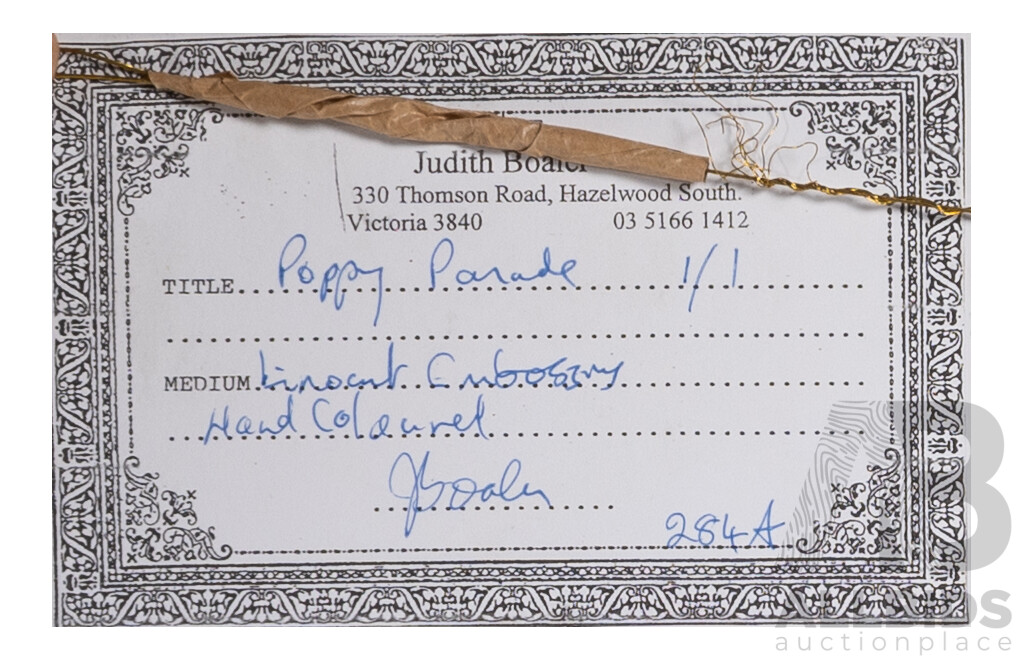 Judith Boaler
330 Thomson Road, Hazelwood South.
Victoria 3840 03 5166 1412
TITLE Poppy Parade 1/1
MEDIUM Linocut Embossing
Hand Coloured
JBoaler
284A
ALLBIDS
auctionplace